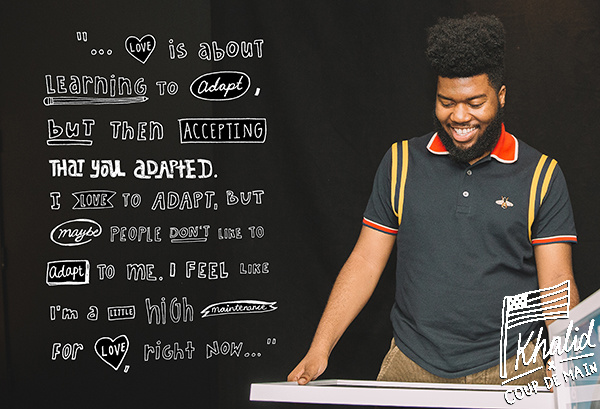 "... LOVE is about
LEARNING to Adapt,
but then ACCEPTING
THAT YOU ADAPTED.
I LOVE TO ADAPT, BUT
maybe PEOPLE DON'T LIKE TO
Adapt TO ME. I FEEL LIKE
I'm a LITTLE HIGH maintenance
FOR LOVE, right NOW..."
Khalid
x
COUP DE MAIN